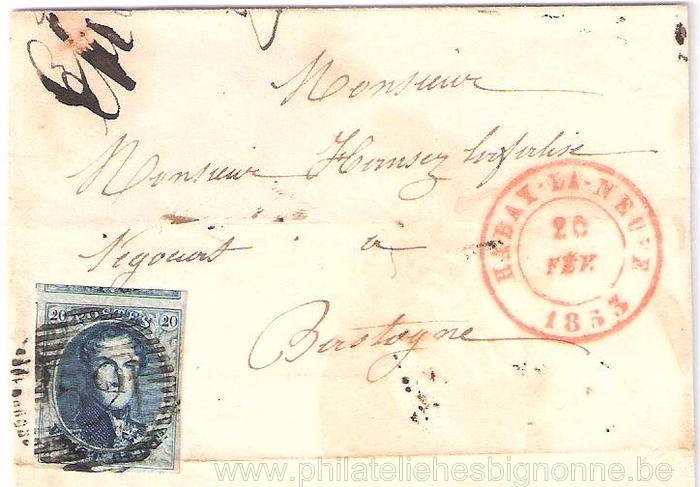 Monsieur
Monsieur Hansez Lafalise
Négociant à
Bastogne
HABAY-LA-NEUVE
20
FÉV.
1853
20 POSTES 20
www.philateliehesbignonne.be